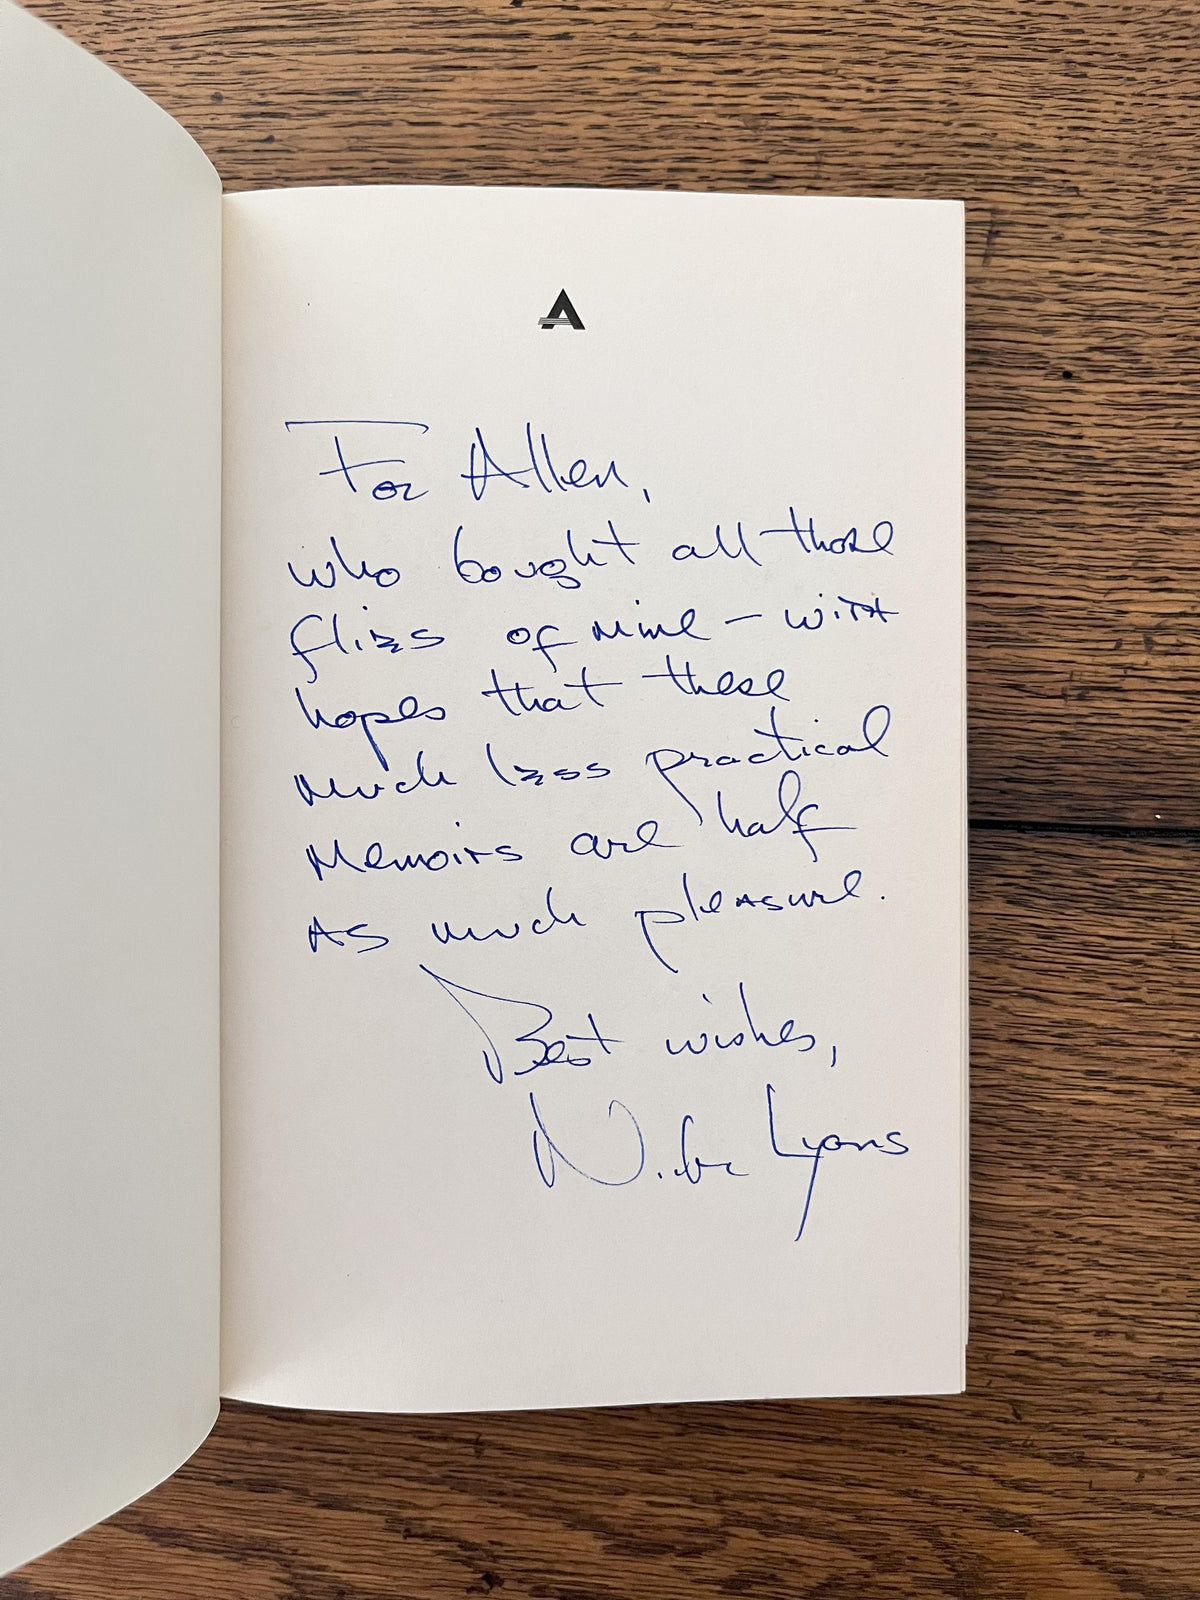 A
For Allen,
who bought all those
flies of mine – with
hopes that these
much less practical
Memoirs are half
As much pleasure.
Best wishes,
Nick Lyons